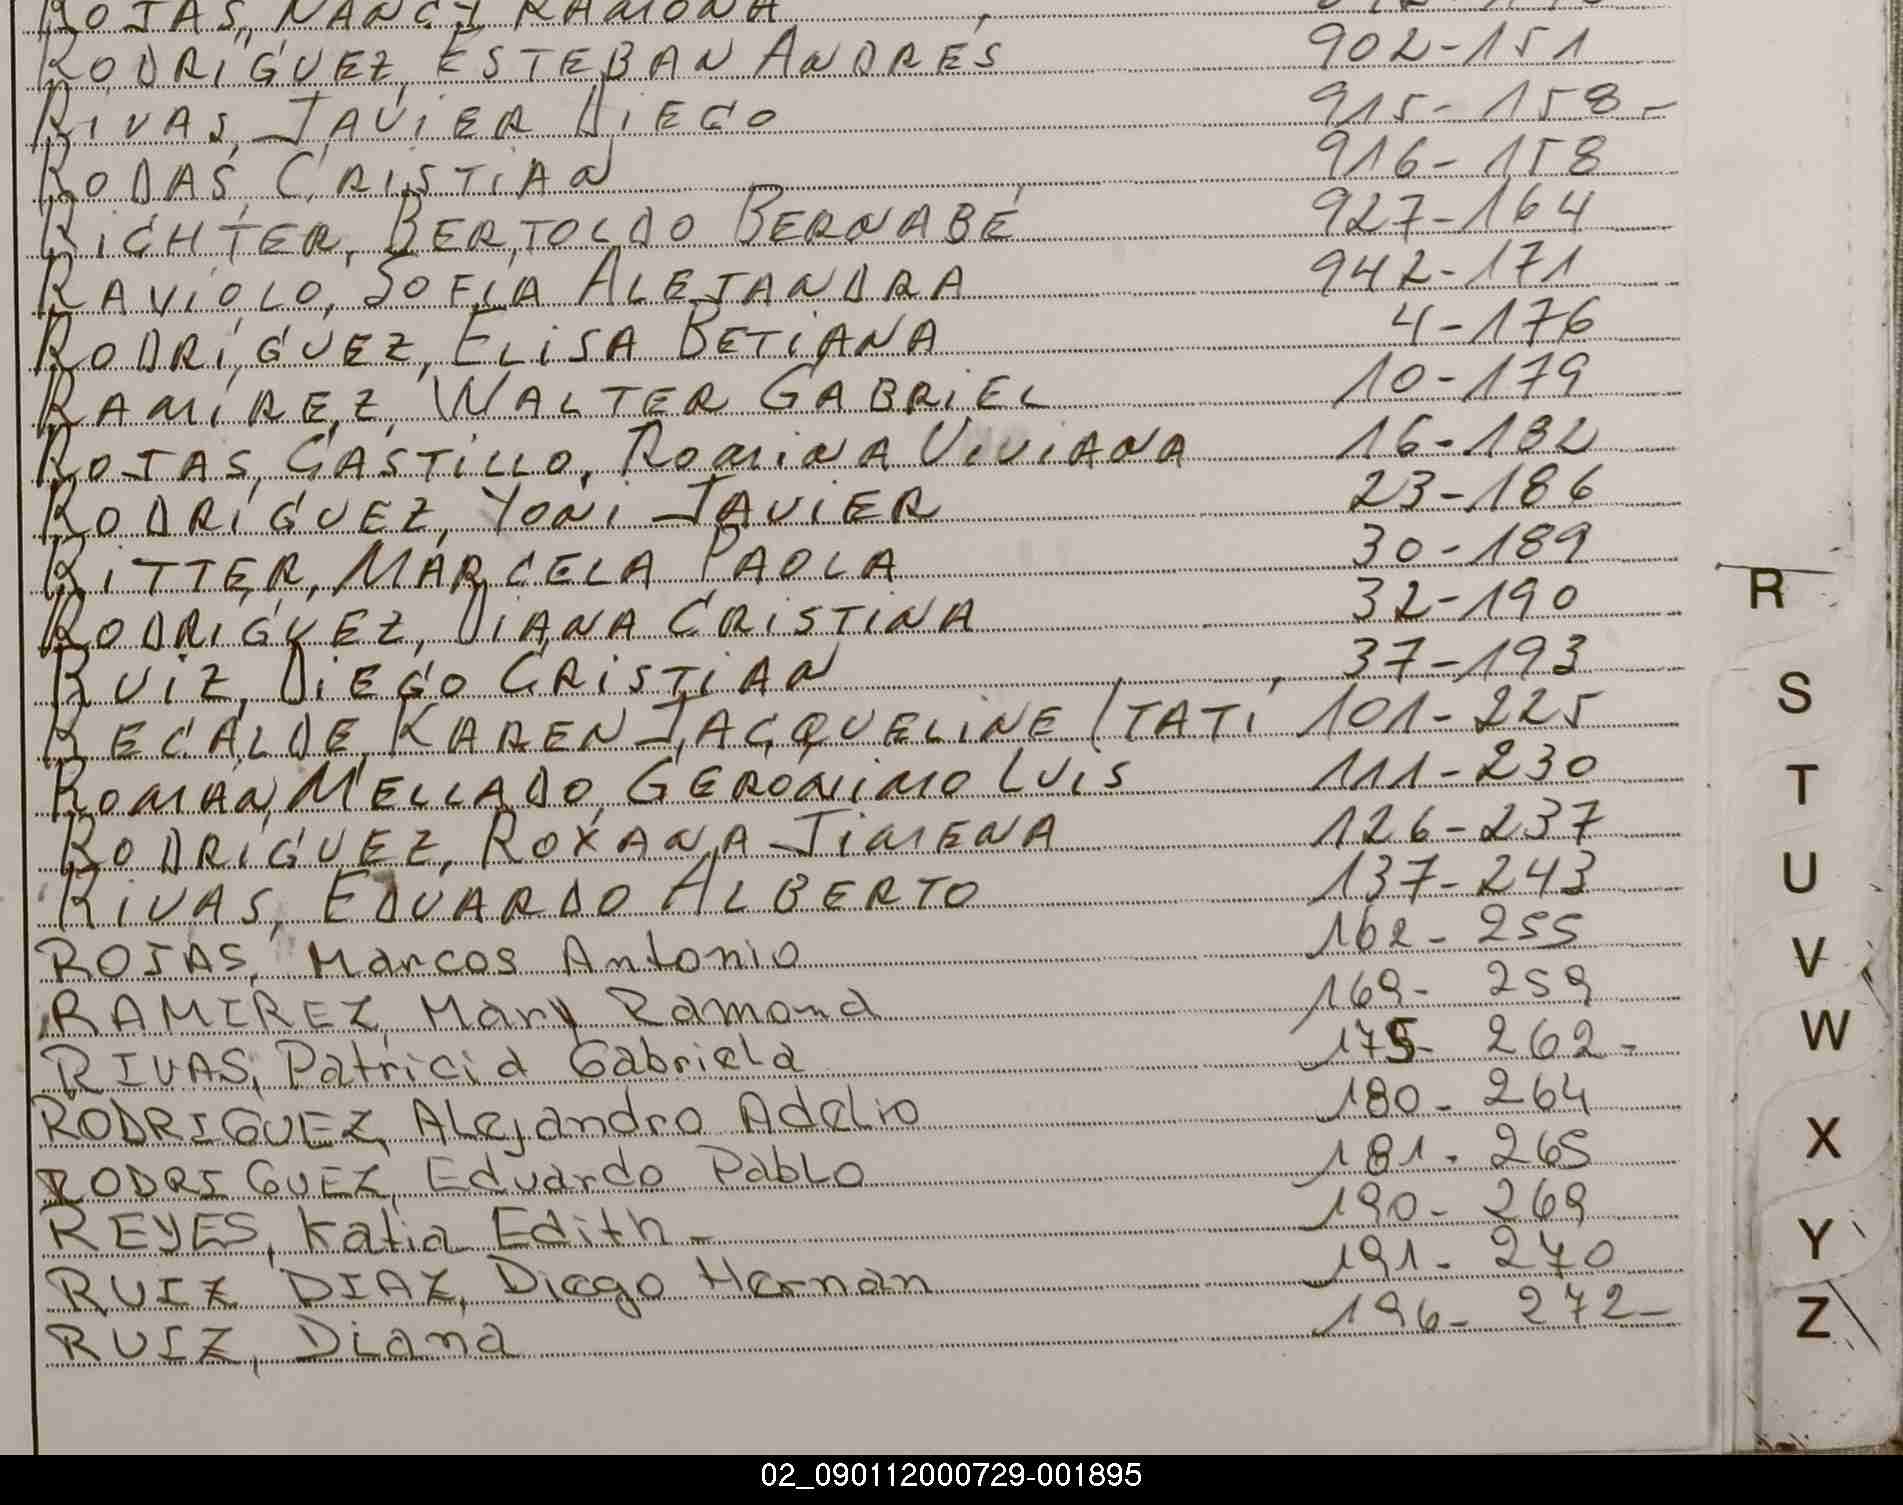 ROJAS, NANCY RAMONA
RODRÍGUEZ, ESTEBAN ANDRÉS 902-151
RIVAS, JAVIER DIEGO 915-158-
RODAS, CRISTIAN 916-158
RICHTER, BERTOLDO BERNABÉ 927-164
RAVIOLO, SOFÍA ALEJANDRA 942-171
RODRÍGUEZ, ELISA BETIANA 4-176
RAMÍREZ, WALTER GABRIEL 10-179
ROJAS CASTILLO, ROMINA VIVIANA 16-182
RODRÍGUEZ, YONI JAVIER 23-186
RITTER, MARCELA PAOLA 30-189
RODRIGUEZ, DIANA CRISTINA 32-190
RUIZ, DIEGO CRISTIAN 37-193
RECALDE, KAREN JACQUELINE (TATI 101-225
ROMÁN MELLADO, GERÓNIMO LUIS 111-230
RODRÍGUEZ, ROXANA JIMENA 126-237
RIVAS, EDUARDO ALBERTO 137-243
ROJAS, Marcos Antonio 162-255
RAMIREZ, Mary Ramona 169-259
RIVAS, Patricia Gabriela 175-262-
RODRIGUEZ, Alejandro Adelio 180-264
RODRIGUEZ, Eduardo Pablo 181-265
REYES, Katia Edith- 190-269
RUIZ DIAZ, Diego Hernán 191-270
RUIZ, Diana 196-272-
R
S
T
U
V
W
X
Y
Z
02_090112000729-001895